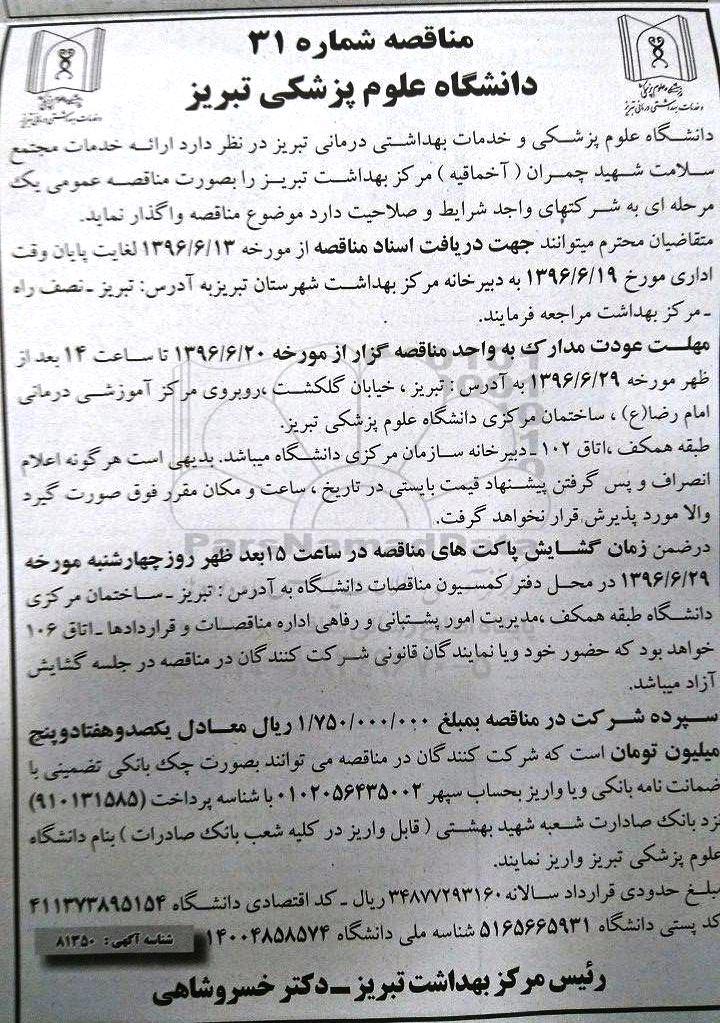 مناقصه شماره ۳۱
دانشگاه علوم پزشکی تبریز
و خدمات بهداشتی درمانی تبریز
و خدمات بهداشتی درمانی تبریز
دانشگاه علوم پزشکی و خدمات بهداشتی درمانی تبریز در نظر دارد ارائه خدمات مجتمع
سلامت شهید چمران ( آخماقیه ) مرکز بهداشت تبریز را بصورت مناقصه عمومی یک
مرحله ای به شرکتهای واجد شرایط و صلاحیت دارد موضوع مناقصه واگذار نماید.
متقاضیان محترم میتوانند جهت دریافت اسناد مناقصه از مورخه ۱۳۹۶/۶/۱۳ لغایت پایان وقت
اداری مورخ ۱۳۹۶/۶/۱۹ به دبیرخانه مرکز بهداشت شهرستان تبریزبه آدرس: تبریز ـ نصف راه
ـ مرکز بهداشت مراجعه فرمایند.
مهلت عودت مدارک به واحد مناقصه گزار از مورخه ۱۳۹۶/۶/۲۰ تا ساعت ۱۴ بعد از
ظهر مورخه ۱۳۹۶/۶/۲۹ به آدرس : تبریز ، خیابان گلگشت ،روبروی مرکز آموزشی درمانی
امام رضا(ع) ، ساختمان مرکزی دانشگاه علوم پزشکی تبریز.
طبقه همکف ،اتاق ۱۰۲ ـ دبیرخانه سازمان مرکزی دانشگاه میباشد. بدیهی است هرگونه اعلام
انصراف و پس گرفتن پیشنهاد قیمت بایستی در تاریخ ، ساعت و مکان مقرر فوق صورت گیرد
والا مورد پذیرش قرار نخواهد گرفت.
ParsNamadData
درضمن زمان گشایش پاکت های مناقصه در ساعت ۱۵بعد ظهر روزچهارشنبه مورخه
۱۳۹۶/۶/۲۹ در محل دفتر کمسیون مناقصات دانشگاه به آدرس : تبریز ـ ساختمان مرکزی
دانشگاه طبقه همکف ،مدیریت امور پشتبانی و رفاهی اداره مناقصات و قراردادها ـ اتاق ۱۰۶
خواهد بود که حضور خود ویا نمایندگان قانونی شرکت کنندگان در مناقصه در جلسه گشایش
آزاد میباشد.
سپرده شرکت در مناقصه بمبلغ ۱/۷۵۰/۰۰۰/۰۰۰ ریال معادل یکصدوهفتادوپنج
میلیون تومان است که شرکت کنندگان در مناقصه می توانند بصورت چک بانکی تضمینی یا
ضمانت نامه بانکی ویا واریز بحساب سپهر ۰۱۰۲۰۵۶۴۳۵۰۰۲ با شناسه پرداخت (۹۱۰۱۳۱۵۸۵)
نزد بانک صادارت شعبه شهید بهشتی ( قابل واریز در کلیه شعب بانک صادرات ) بنام دانشگاه
علوم پزشکی تبریز واریز نمایند.
مبلغ حدودی قرارداد سالانه ۳۴۸۷۷۲۹۳۱۶۰ ریال ـ کد اقتصادی دانشگاه ۴۱۱۳۷۳۸۹۵۱۵۴
کد پستی دانشگاه ۵۱۶۵۶۶۵۹۳۱ شناسه ملی دانشگاه ۱۴۰۰۴۸۵۸۵۷۴
شناسه آگهی: ۸۱۳۵۰
رئیس مرکز بهداشت تبریز ـ دکتر خسروشاهی